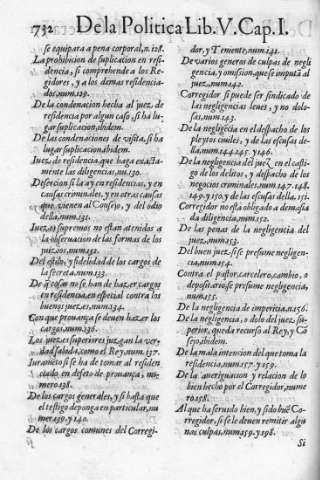 732 De la Politica Lib. V. Cap. I.
se equipara a pena corporal, n.128.
La prohibicion de suplicacion en resi-
dencia, si comprehende a los Re-
gidores, y a los demas residencia-
dos, num.129.
De la condenacion hecha al juez de
residencia por algun caso, si ha lu-
gar suplicacion, ibidem.
De las condenaciones de visita, si ha
lugar suplicacion, ibidem.
Juez de residencia, que haga exacta-
mente las diligencias, nu.130.
Desercion si la ay en residencias, y en
causas criminales, y en otras causas
que vienen al Consejo, y del odio
della, num.131.
Juezes supremos no estan atenidos a
la observacion de las formas de los
juizios, num.132.
Del estilo, y fidelidad de los cargos de
la secreta, num.133.
De q̃ cosas no se han de hazer cargos
en residencia, en especial contra los
buenos juezes, nu.134.
Con que provança se deven hazer los
cargos, num.136.
Los juezes superiores juzgan la ver-
dad sabida, como el Rey, num.137.
Juramẽto si se ha de tomar al residen
ciado en defeto de provança, nu-
mero 138.
De los cargos generales, y si basta que
el testigo deponga en particular, nu
mer.139. y 140.
De los cargos comunes del Corregi-
dor, y Teniente, num.141.
De varios generos de culpas de negli
gencia, y omision, que se imputã al
juez, num.142.
Corregidor si puede ser sindicado de
las negligencias leves, y no dolo-
sas, num.143.
De la negligẽcia en el despacho de los
pleytos civiles, y de las escusas de-
lla, num.144.145. y 146.
De la negligencia del juez en el casti-
go de los delitos, y despacho de los
negocios criminales, num.147.148.
149. y 150. y de las escusas della.151.
Corregidor no està obligado a demasia
da diligencia, num.152.
De las penas de la negligencia del
juez, num.153.
Del buen juez si se presume negligen-
cia, num.154.
Contra el pastor, carcelero, cambio, o
depositario se presume negligencia,
num.155.
De la negligencia de impericia, n.156.
De la negligencia, o dolo del juez su-
perior, queda recurso al Rey, y Cõ
sejo, ibidem.
De la mala intencion del que toma la
residencia, num.157. y 159.
De la averiguacion y relacion de lo
bien hecho por el Corregidor, nume
ro 158.
Al que ha servido bien, y sido buẽ Co-
rregidor, si se le deven remitir algu
nas culpas, num.159. y 198.
Si